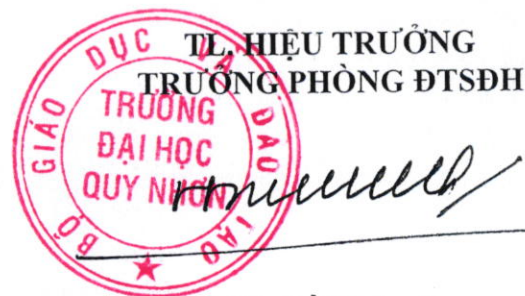 TL. HIỆU TRƯỞNG
TRƯỞNG PHÒNG ĐTSĐH
BỘ GIÁO DỤC VÀ ĐÀO TẠO
TRƯỜNG
ĐẠI HỌC
QUY NHƠN